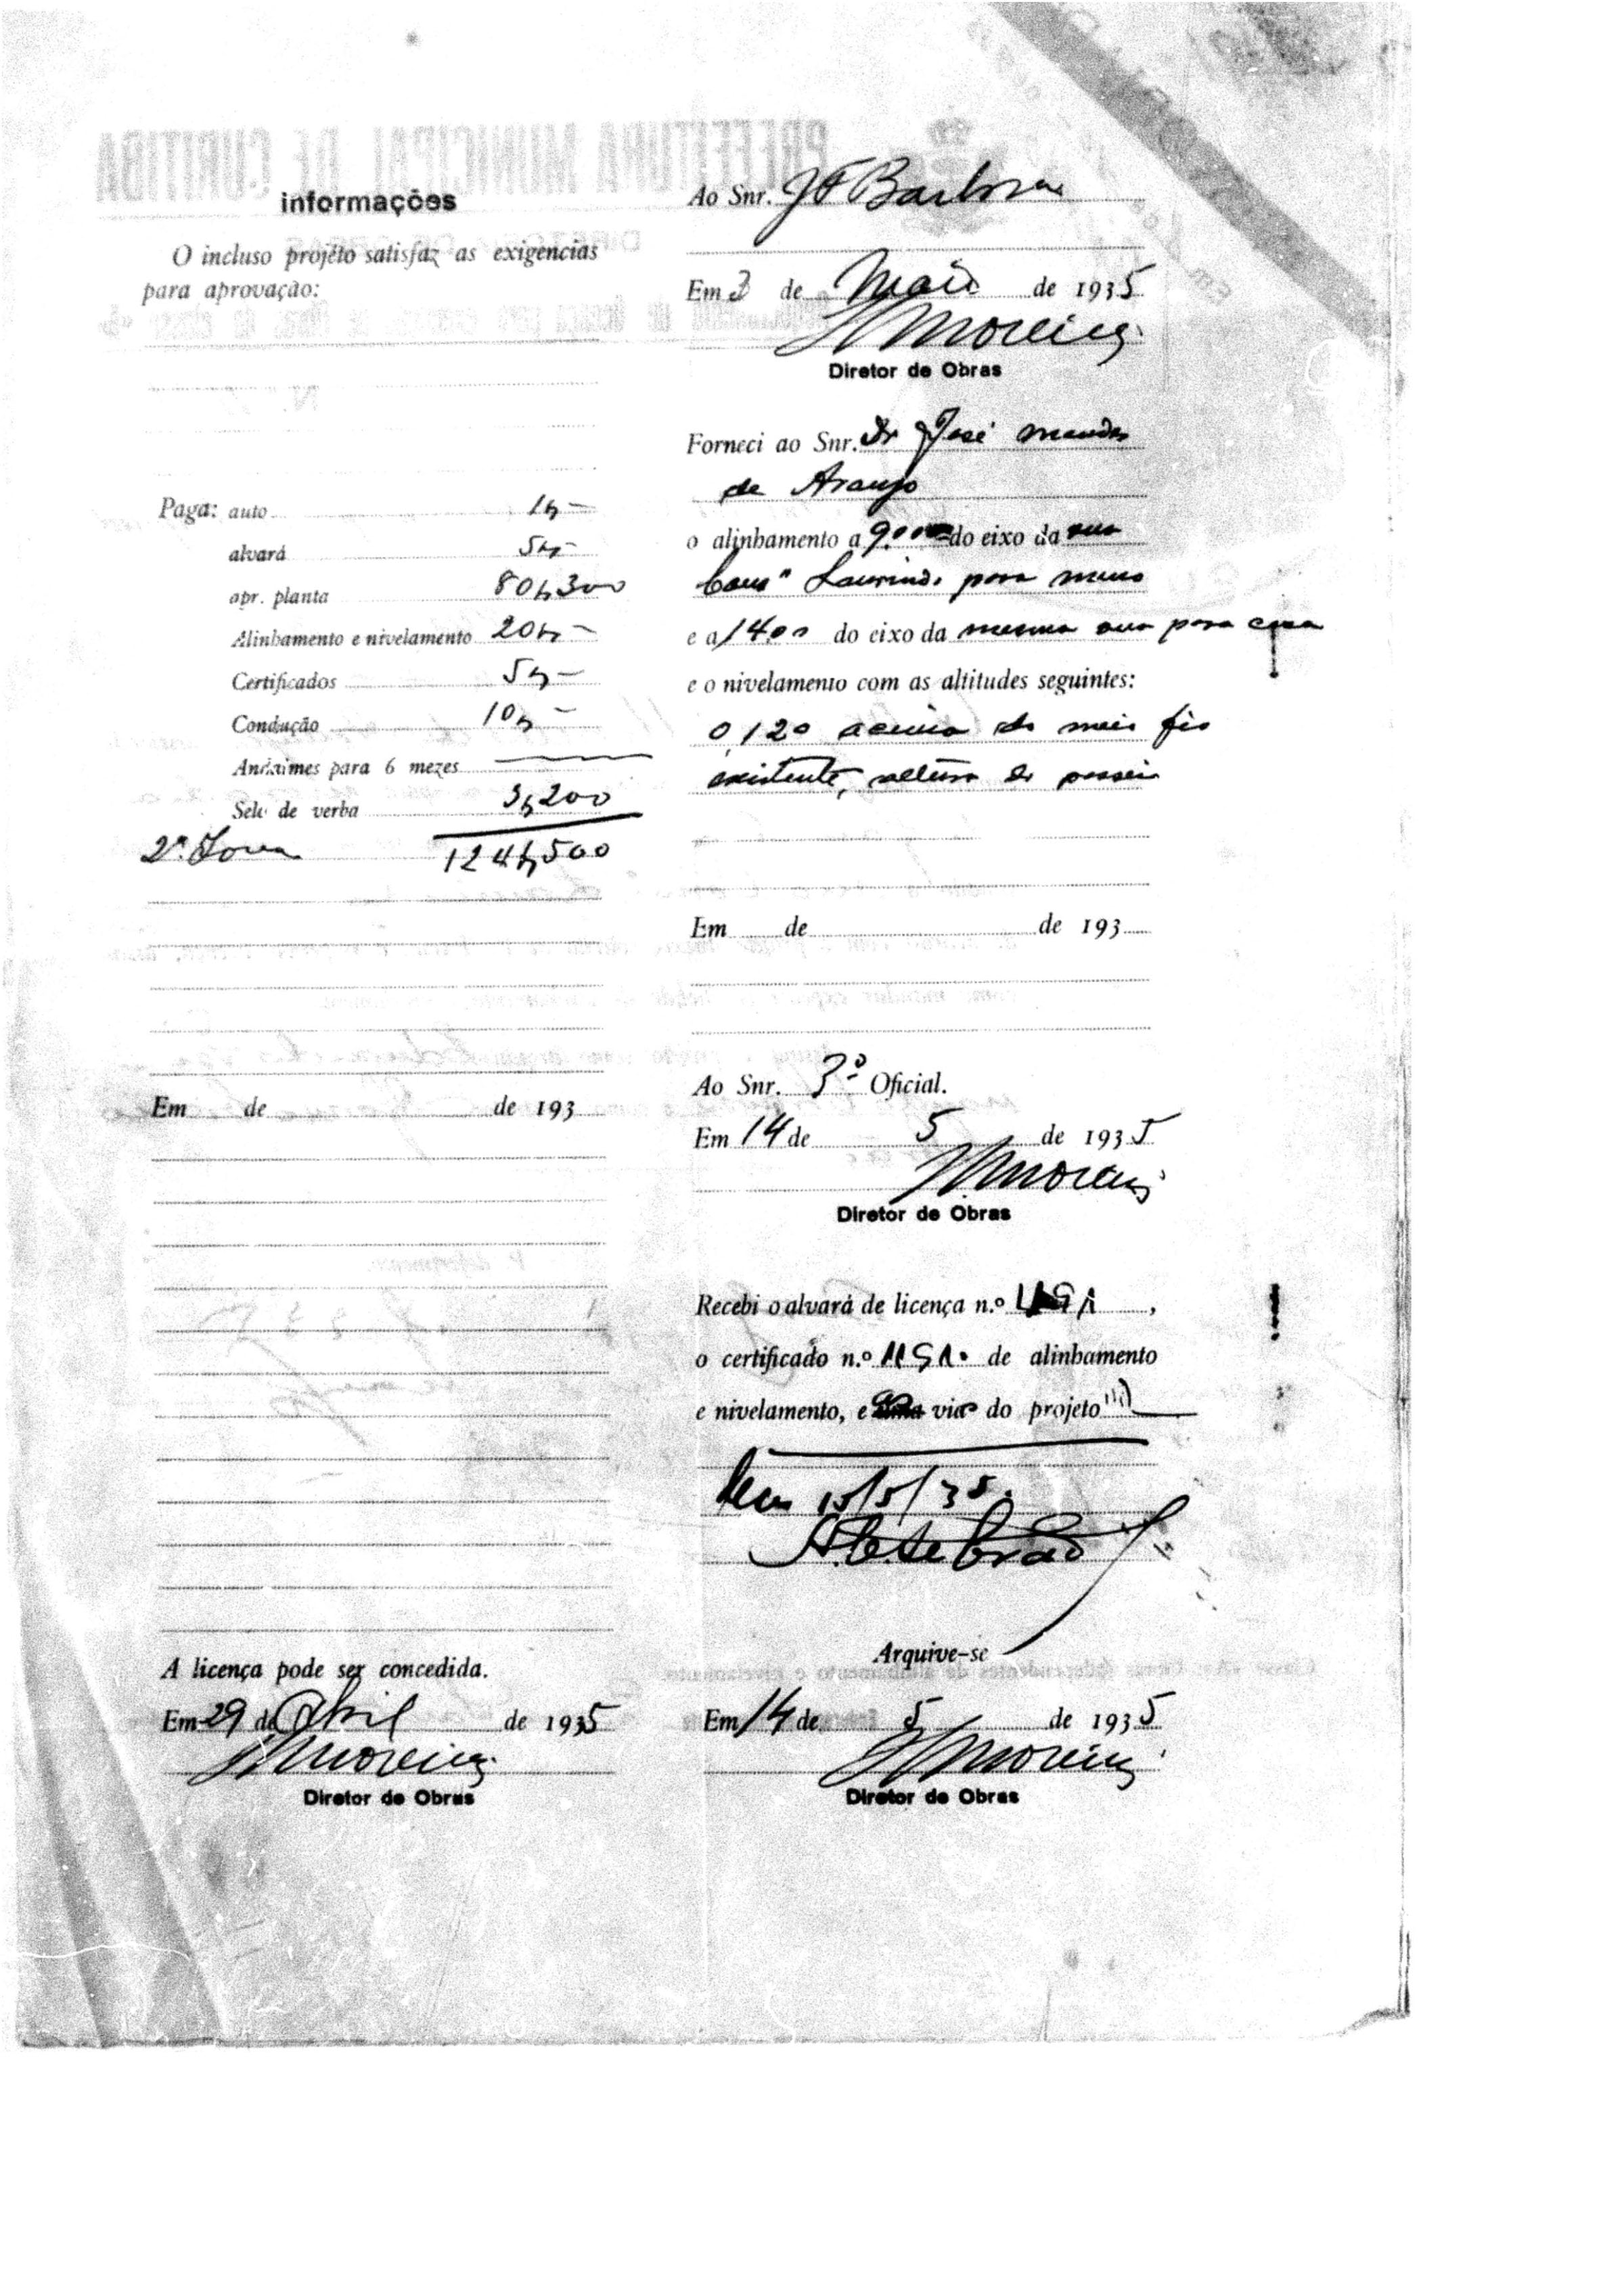 informações
O incluso projéto satisfaz as exigencias
para aprovação:
Paga: auto 1$—
alvará 5$—
apr. planta 80$300
Alinhamento e nivelamento 20$—
Certificados 5$—
Condução 10$—
Andaimes para 6 mezes
Selo de verba 3$200
2ª Zona 124$500
Em de de 193
A licença pode ser concedida.
Em 29 de Abril de 1935
Moreira
Diretor de Obras
Ao Snr. Barbosa
Em 3 de Maio de 1935
Moreira
Diretor de Obras
Forneci ao Snr. Dr José Mendes
de Araujo
o alinhamento a 9.00 do eixo da rua
Cons° Laurindo para muro
e a 14.00 do eixo da mesma rua para casa
e o nivelamento com as altitudes seguintes:
0,120 acima do meio fio
existente, altura do passeio
Em de de 193
Ao Snr. 3º Oficial.
Em 14 de 5 de 1935
Moreira
Diretor de Obras
Recebi o alvará de licença n.º ,
o certificado n.º de alinhamento
e nivelamento, e via do projeto
Em 15/5/35.
Arquive-se
Em 14 de 5 de 1935
Moreira
Diretor de Obras
PREFEITURA MUNICIPAL DE CURITIBA